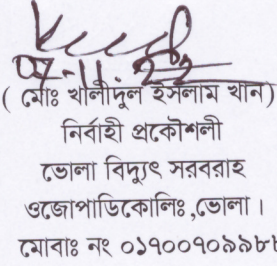 ০৭-১১-২২
( মোঃ খালীদুল ইসলাম খান)
নির্বাহী প্রকৌশলী
ভোলা বিদ্যুৎ সরবরাহ
ওজোপাডিকোলিঃ,ভোলা ।
মোবাঃ নং ০১৭০০৭০৯৯৮৮